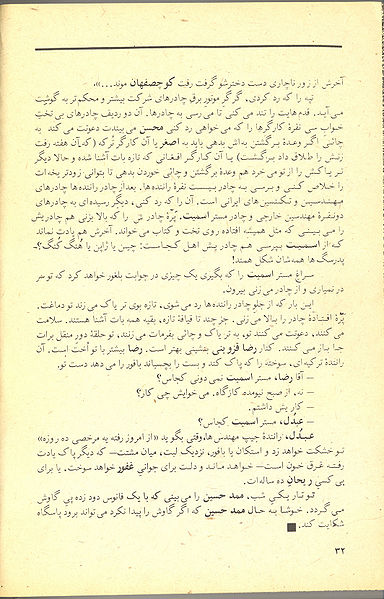 آخرش از زور ناچاری دست دخترشو گرفت رفت کوچصفهان موند...».
تپه را که رد کردی، گرگر موتور برق چادرهای شرکت بیشتر و محکم‌تر به گوشت
می‌آید. قدم‌هایت را تند می‌کنی تا می‌رسی به چادرها. آن دو ردیف چادرهای بی تخت
خواب سی نفرهٔ کارگرها را که می‌خواهی رد کنی محسن می‌بیندت دعوتت می‌کند به
چائی. اگر وعدهٔ برگشتن به‌اش بدهی باید به اصغر یا آن کارگر ترکه (که آن هفته رفت
زنش را طلاق داد برگشت) یا آن کارگر افغانی که تازه بات آشنا شده و حالا دیگر
تریاکش را از تو می‌خرد هم وعدهٔ برگشتن و چائی خوردن بدهی تا بتوانی زودتر یخه‌ات
را خلاص کنی و برسی به چادر بیست نفرهٔ راننده‌ها. بعد از چادر راننده‌ها چادرهای
مهندسین و تکنسین‌های ایرانی است. آن را که رد کنی، دیگر رسیده‌ای به چادرهای
دونفرهٔ مهندسین خارجی و چادر مستر اسمیت. پَرّهٔ چادرش را که بالا بزنی هم چادریش
را می‌بینی که مثل همیشه افتاده روی تخت و کتاب می‌خواند. آخرش هم یادت نماند
که از اسمیت بپرسی هم چادریش اهل کجاست: چین یا ژاپن یا هُنگ کُنگ؟ـ
پدرسگ‌ها همه‌شان شکل همند!
سراغ مستر اسمیت را که بگیری یک چیزی در جوابت بلغور خواهد کرد که تو سر
در نمیاری و از چادر می‌زنی بیرون.
این بار که از جلو چادر راننده‌ها رد می‌شوی، تازه بوی تریاک می‌زند تو دماغت.
پَرّهٔ افتادهٔ چادر را بالا می‌زنی. جز چند تا قیافهٔ تازه، بقیه همه بات آشنا هستند. سلامت
می‌کنند، دعوتت می‌کنند تو، به تریاک و چائی بفرمات می‌زنند، تو حلقهٔ دور منقل برات
جا باز می‌کنند. کنار رضا قزوینی بنشینی بهتر است. رضا بیشتر با تو اُخت است. آن
رانندهٔ ترکه‌ای، سوخته را که پاک کند و بست را بچسباند بافور را می‌دهد دست تو.
— آقا رضا، مستر اسمیت نمی دونی کجاس؟
— نه، از صبح نیومده کارگاه. می‌خوایش چی کار؟
— کاریش داشتم.
— عبدُل، مستر اسمیت کجاس؟
عبدُل، رانندهٔ جیپ مهندس‌ها، وقتی بگوید «از امروز رفته به مرخصی ده روزه»
تو خشکت خواهد زد و استکان یا بافور، نزدیک لبت، میان مشتت— که دیگر پاک یادت
رفته غرق خون است— خواهد ماند و دلت برای جوانی غفور خواهد سوخت، یا برای
بی کسی ریحانِ ده ساله‌ات.
تو تاریکی شب، ممد حسین را می‌بینی که با یک فانوس دود زده پی گاوش
می‌گردد. خوشا به حال ممد حسین که اگر گاوش را پیدا نکرد می‌تواند برود پاسگاه
شکایت کند. ■
۳۲